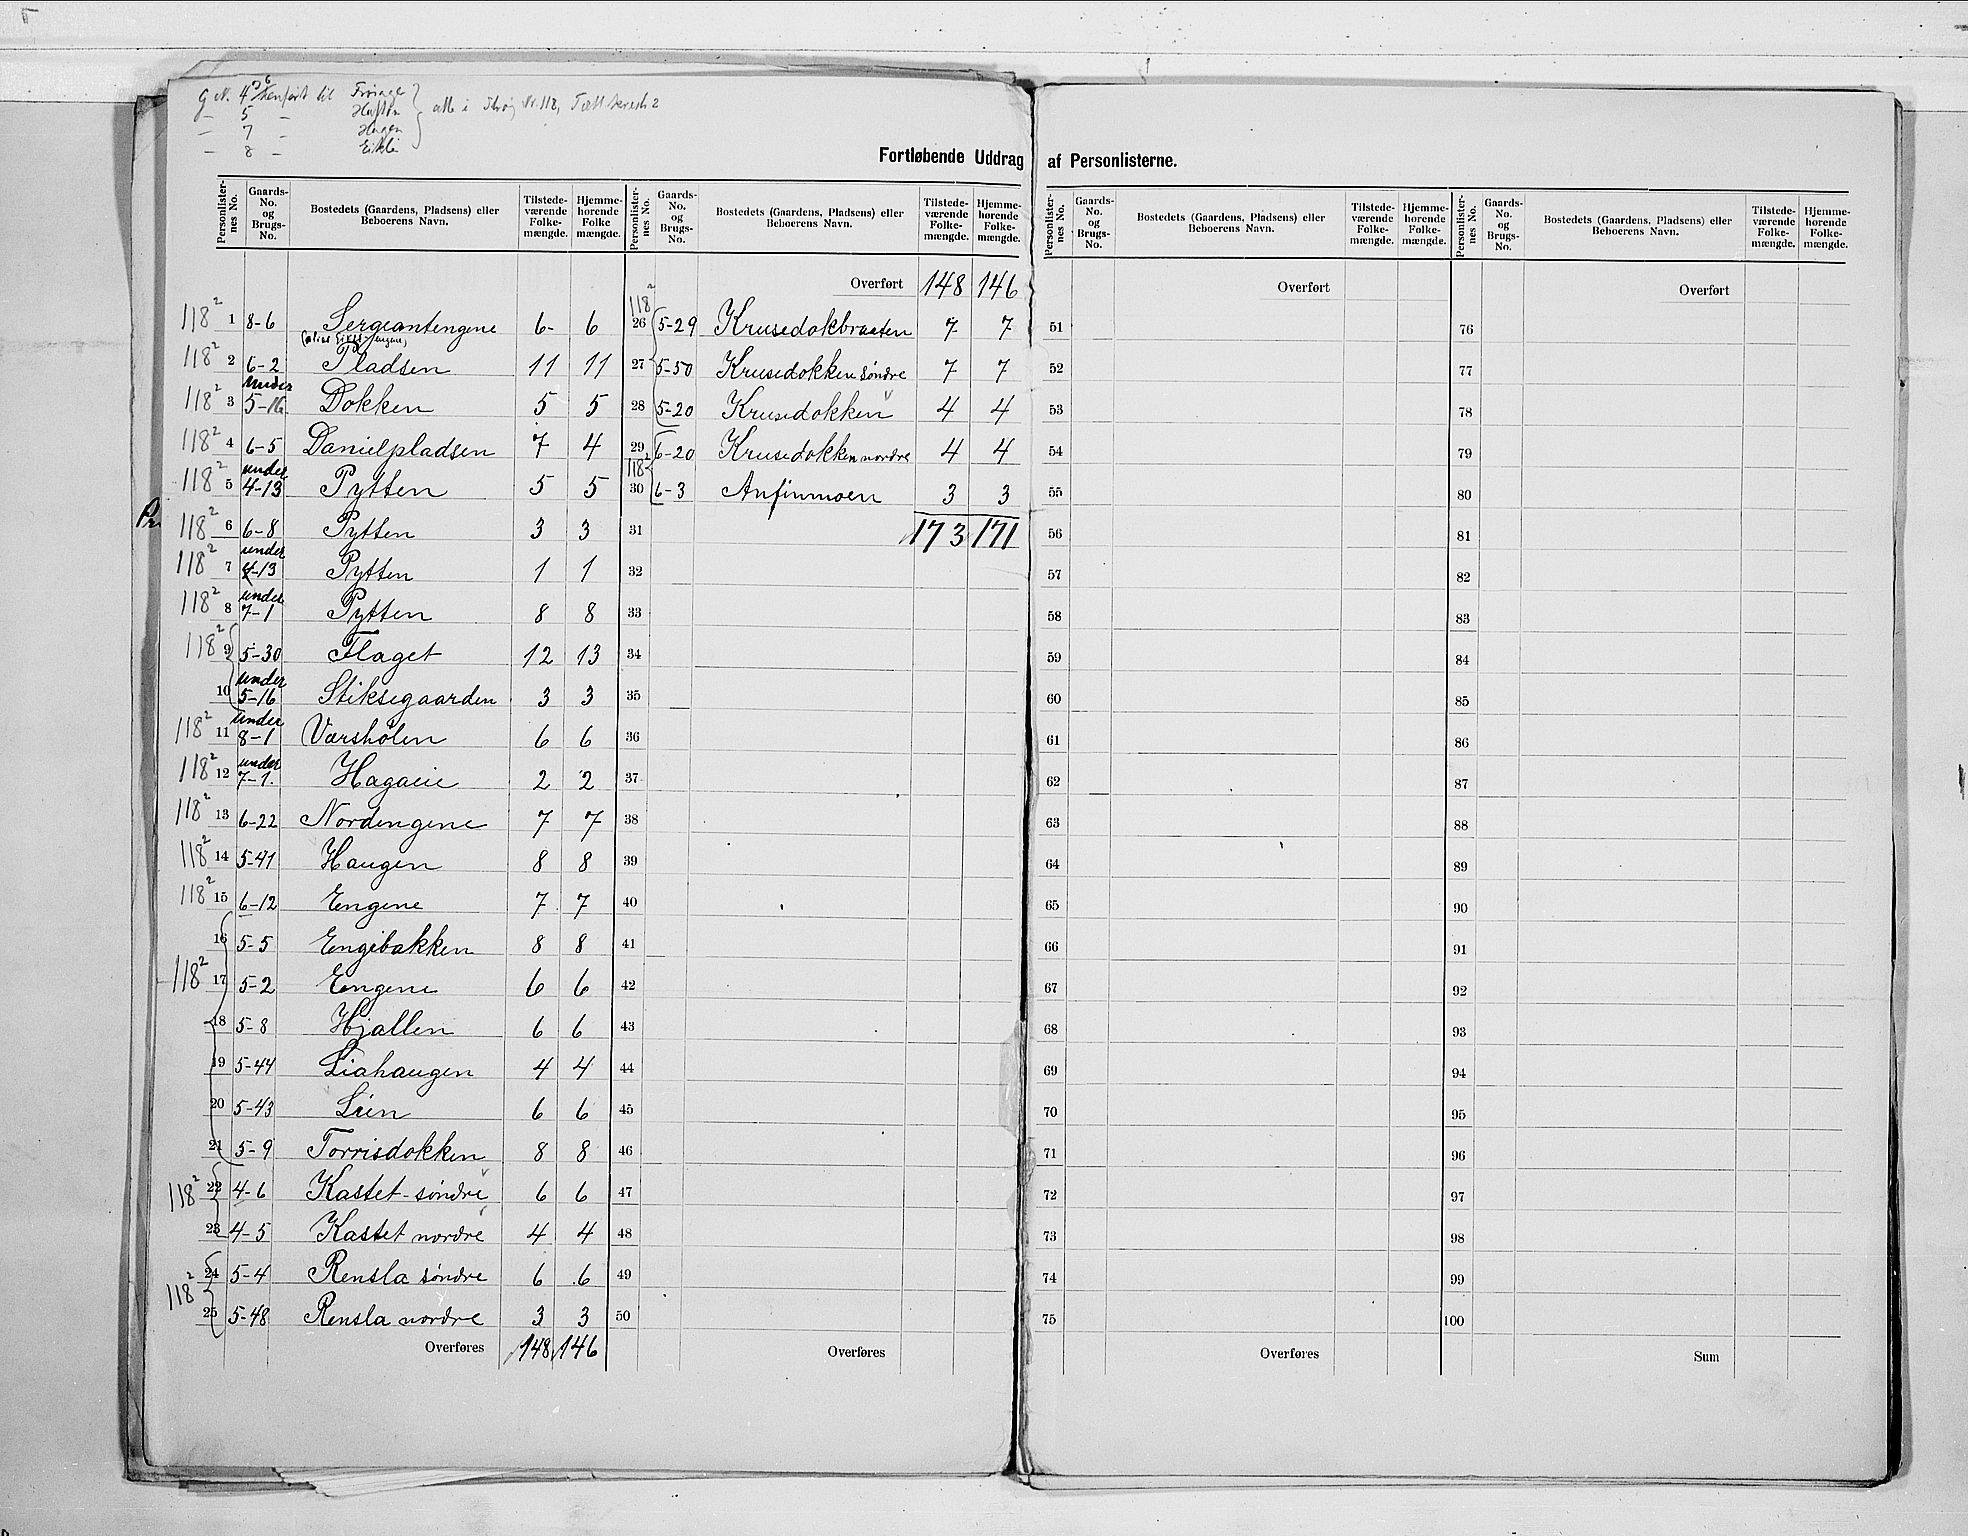 G.N. 4
5
7
8
Hagen
Fortløbende Uddrag af Personlisterne.
Personlister-nes No. | Gaards-No. og Brugs-No. | Bostedets (Gaardens, Pladsens) eller Beboerens Navn. | Tilstede-værende Folke-mængde. | Hjemme-hørende Folke mængde. | Personlister-nes No. | Gaards-No. og Brugs-No. | Bostedets (Gaardens, Pladsens) eller Beboerens Navn. | Tilstede-værende Folke-mængde. | Hjemme-hørende Folke-mængde. | Personlister-nes No. | Gaards-No. og Brugs-No. | Bostedets (Gaardens, Pladsens) eller Beboerens Navn. | Tilstede-værende Folke-mængde. | Hjemme-hørende Folke-mængde. | Personlister-nes No. | Gaards-No. og Brugs-No. | Bostedets (Gaardens, Pladsens) eller Beboerens Navn. | Tilstede-værende Folke-mængde. | Hjemme-hørende Folke-mængde.
Overført 148 146 Overført Overført
118² 1 8-6 Sergeantengene 6- 6 118² 26 5-29 Krusedokbraaten 7 7 51 76
118² 2 6-2 Pladsen 11 11 27 5-50 Krusedokken søndre 7 7 52 77
118² 3 under 5-16 Dokken 5 5 28 5-20 Krusedokken 4 4 53 78
118² 4 6-5 Danielpladsen 7 4 29 6-20 Krusedokken nordre 4 4 54 79
118² 5 under 4-13 Pytten 5 5 118² 30 6-3 Anfinmoen 3 3 55 80
118² 6 6-8 Pytten 3 3 31 173 171 56 81
118² 7 under 4-13 Pytten 1 1 32 57 82
118² 8 under 7-1 Pytten 8 8 33 58 83
118² 9 5-30 Flaget 12 13 34 59 84
10 under 5-16 Stiksegaarden 3 3 35 60 85
118² 11 under 8-1 Værshölen 6 6 36 61 86
118² 12 under 7-1. Hagaeie 2 2 37 62 87
118² 13 6-22 Nordengene 7 7 38 63 88
118² 14 5-41 Haugen 8 8 39 64 89
118² 15 6-12 Engene 7 7 40 65 90
16 5-5 Engebakken 8 8 41 66 91
118² 17 5-2 Engene 6 6 42 67 92
18 5-8 Hjallen 6 6 43 68 93
19 5-44 Liahaugen 4 4 44 69 94
20 5-43 Lien 6 6 45 70 95
21 5-9 Torrisdokken 8 8 46 71 96
118² 22 4-6 Kastet søndre 6 6 47 72 97
23 4-5 Kastet nordre 4 4 48 73 98
118² 24 5-4 Rensla søndre 6 6 49 74 99
25 5-48 Rensla nordre 3 3 50 75 100
Overføres 148 146 Overføres Overføres Sum